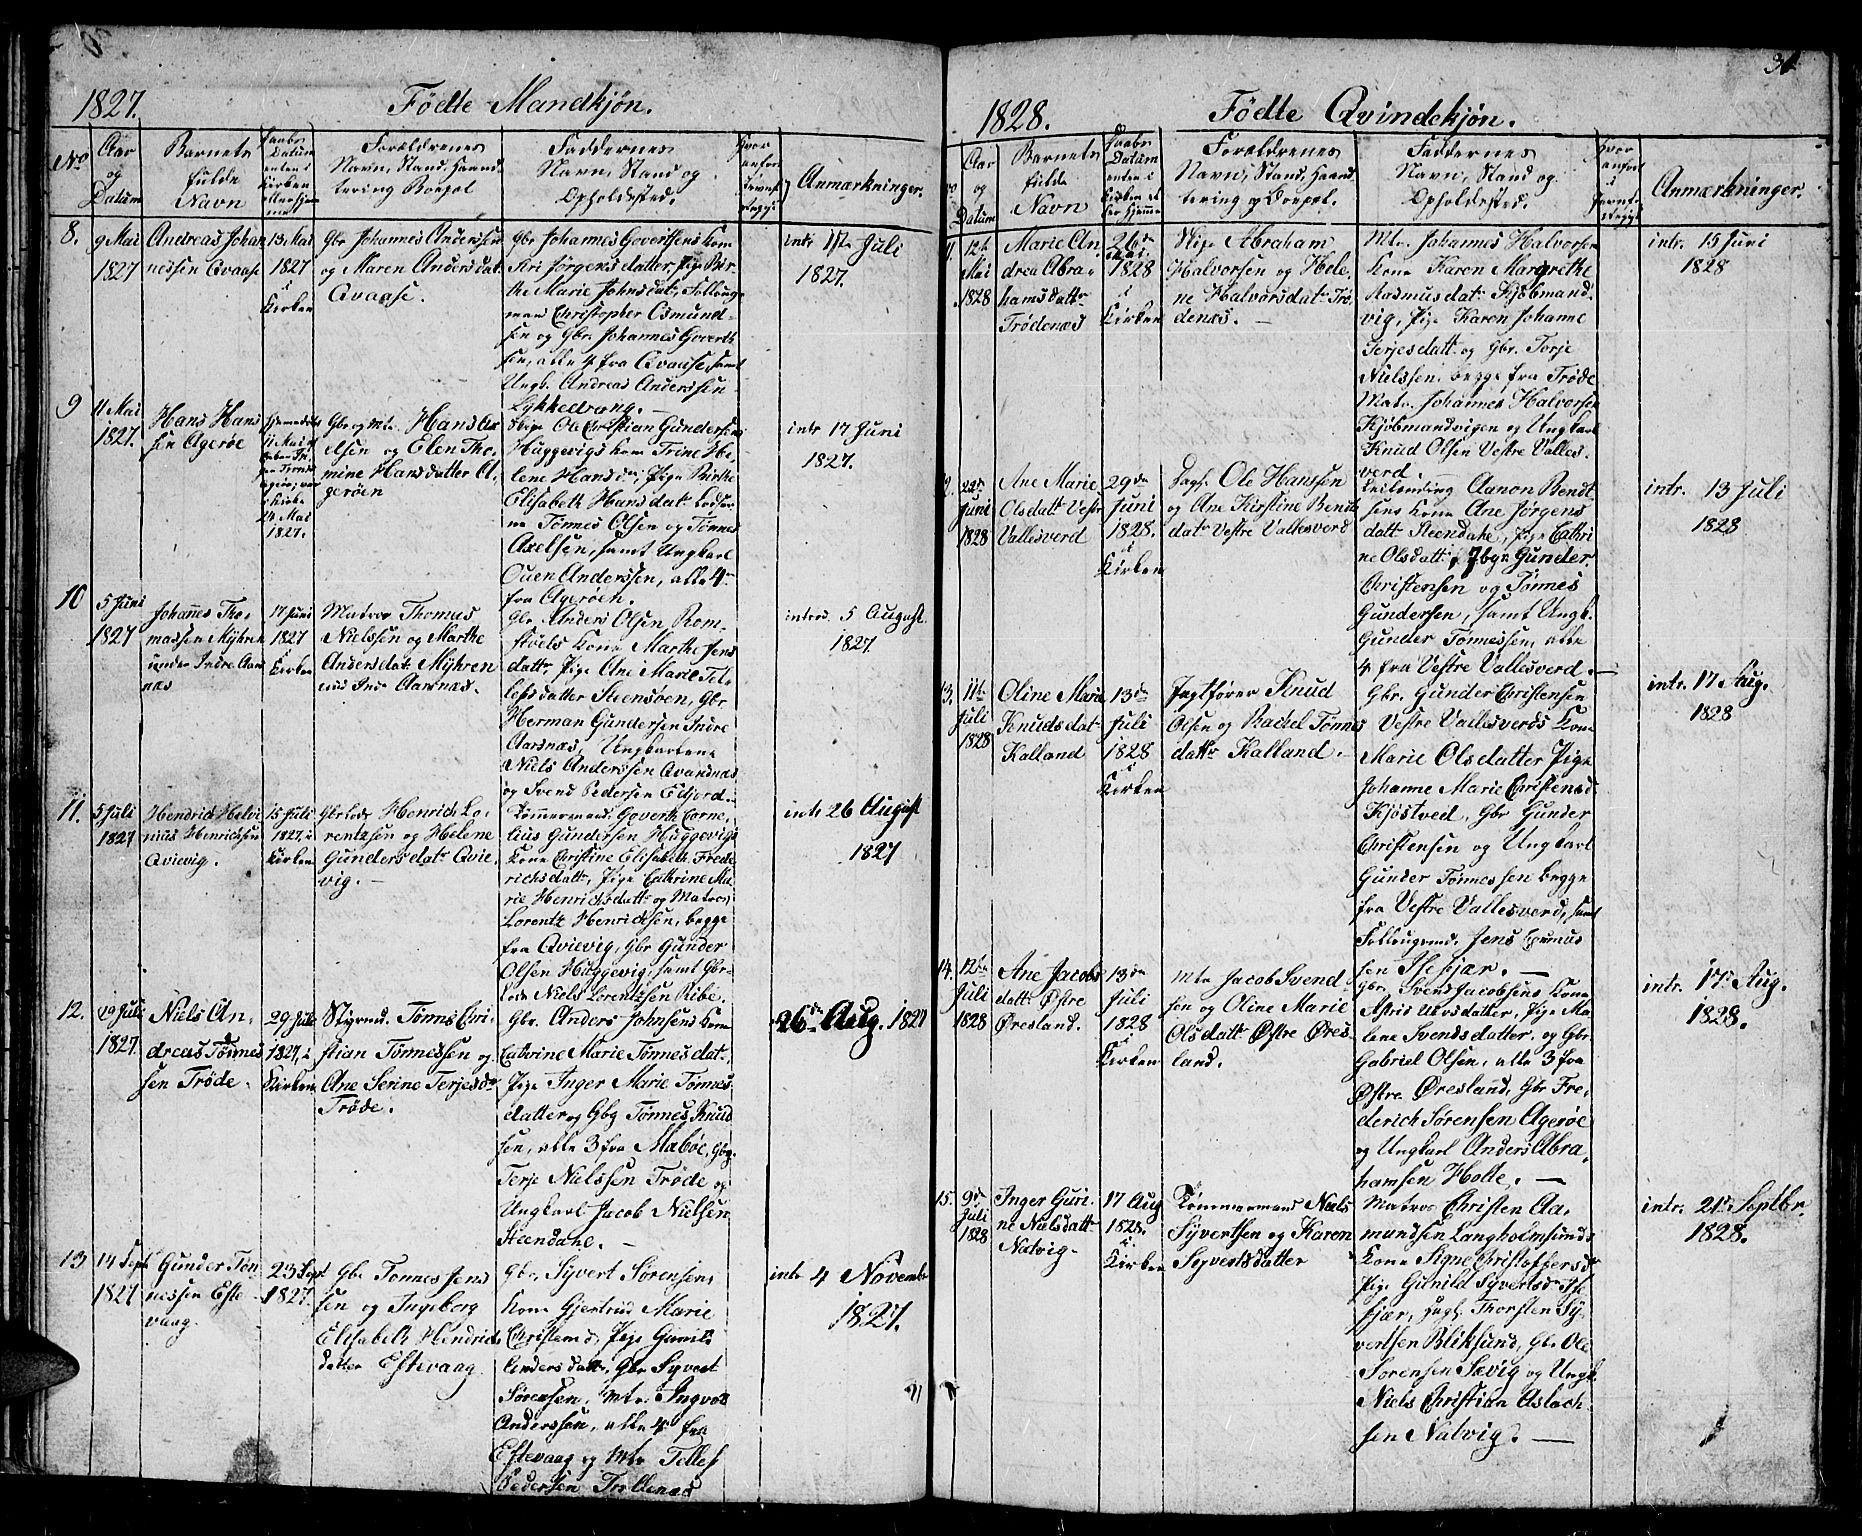 1827.
Fødte Mandkjøn.
No
Aar
og
Datum
Barnets
fulde
Navn
Daabs
Datum
enten i
Kirken
eller hjem
me
Forældrenes
Navn, Stand, Haand
tering Boepæl
Faddernes
Navn, Stand og
Opholdested.
Anmærkninger.
8.
9 Mai
1827
Andreas Johan
nessen Qvaase
13 Mai
1827
i
Kirken
Gbr Johannes Anderssen
og Maren Andersdat.
Qvaase.
Gbr Johannes Govertsens Kone
Siri Jørgensdatter, Pige Bir
the Marie Johnsdat,
mand Christopher Osmund
sen og Gbr. Johannes Govert
sen, alle 4 fra Qvaase, samt
Ungk. Andreas Anderssen
Lykkedrang.
intr 1ste Juli
1827.
9
11 Mai
1827.
Hans Hans
sen Agerøe
Hjemmedøbt
11 Mai
1827.
Gbr og mtr. Hans Ax
elsen og Elen Tho
mine Hansdatter A
gerøen
Ole Christian Gundersens
Huggevigs kone Trine He
lene Hansdr, Pige Birthe
Elisabeth Hansdat Lodser
ne Tønnes Olsen og Tønnes
Axelsen, samt Ungkarl
Ouen Anderssen, alle 4
fra Agerøen.
intr 17 Juni
1827.
10
5 Juni
1827
Johanes Tho
massen Myhren
under Indre Aars
næs
17 Juni
1827
i
Kirken
Matros Thomas
Nielssen og Marthe
Andersdat. Myhren
und Ind. Aarsnæs.
Gbr. Anders Olsen Rom
støels Kone Marthe Jens
datt. Pige Ane Marie Tel
lefsdatter Steensøen, Gbr
Herman Gundersen Indre
Aarsnæs, Ungkarlene
Niels Anderssen Qvandnæs
og Svend Pedersen Eidjord.
intr 5 August
1827.
11.
5 Juli
1827
Hendrid Helvi
nius Henrichsen
Qvievig.
15 Juli
1827, i
Kirken
Gbr Lods Henrich Lo
rentzsen og Helene
Gundersdatr Qvie
vig.
Tømmermand Goverth Corne
lius Gundersen Huggevigs
Kone Christine Elisabeth Frede
richsdatt, Pige Cathrine Ma
rie Henrichsdatt og Matros
Lorentz Henrichsen, begge
fra Qvievig, Gbr Gunder
Olsen Huggevig, samt Gbr
Lods Niels Lorentzsen Ribe.
intr 26 August
1827
12.
19 Juli
1827.
Niels An
dreas Tønnes
sen Trøde
29 Juli
1827, i
Kirken
Styrmd. Tønnes Chri
stian Tønnessen og
Ane Serine Terjesdr
Trøde.
Gbr. Anders Johnsens Kone
Cathrine Marie Tønnesdat,
Pige Anger Marie Tønnes
datter og Gbg Tønnes Knud
sen, alle 3 fra Mabøe, Gbg.
Terje Nielssen Trøde og
Ungkarl Jacob Nielsen
Steendahl.
26de Aug. 1827
13
14 Sept
1827
Gunder Tøn
nessen Efte
vaag.
23 Sept
1827.
Gbr Tønnes Jens
sen og Ingeborg
Elisabeth Hendrichs
datter Eftevaag
Gbr. Syvert Sørensens
Kone Gjertrud Marie
Christensd, Pige Gunild
Andersdatt, Gbr Syvert
Sørensen, Mtr. Ingvald
Anderssen, alle 4 fra
Eftevaag og Mtr Tellef
Pedersen Trellenæs
intr 4 Novembr
1827.
31
1828.
Fødte Qvindekjøn.
Aar
og
Datum
Barnets
fulde
Navn
Daabs
Datum
enten i
Kirken el
ler hjemme
Forældrenes
Navn, Stand, Haand
tering og Boepæl.
Faddernes
Navn, Stand og
Opholdested.
Anmærkninger.
11.
12te
Mai
1828
Marie An
drea Abra
hamsdattr
Trødenæs
26de
Mai
1828
i
Kirken
Abraham
Halvorsen og Hele
ne Halvorsdatr Trø
denæs.
Mtr. Johannes Halvorsen
Kone Karen Margrethe
Rasmusdat Kjøbmand
vig, Pige Karen Johanne
Terjesdatt. og Gbr. Terje
Nielssen begge fra Trøde
Matr. Johannes Halvorsen
Kjøbmandvigen og Ungkarl
Knud Olsen Vestre Valles
verd
intr. 15 Juni
1828
12.
22de
Juni
1828
Ane Marie
Olsdatt Vestre
Vallesverd
29de
Juni
1828.
i
Kirken
Ole Hanssen
og Ane Kirstine Bendt
datr Vestre Vallesverd
Aanon Bendt
sens Kone Ane Jørgens
datt Steendahl, Pige Cathri
ne Olsdatt, Gunder
Christensen og Tønnes
Gundersen, samt Ungk.
Gunder Tønnessen, alle
4 fra Vestre Vallesverd.
intr. 13 Juli
1828
13.
11te
Juli
1828
Oline Marie
Knudsdat
Kalland
13de
Juli
1828
i
Kirken
Jagtfører Knud
Olsen og Rachel Tønnes
dattr Kalland.
Gbr. Gunder Christensen
Vestre Vallesverds Kone
Marie Olsdatter Pige
Johanne Marie Christensd
Kjøstved, Gbr Gunder
Christensen og Ungkarl
Gunder Tønnessen begge
fra Vestre Vallesverd, samt
Jens Asmus
sen Ifjær.
intr. 17 Aug.
1828
14.
12te
Juli
1828
Ane Jacobs
datt Østre
Øresland.
13de
Juli
1828
i
Kirken
Mtr Jacob Svend
sen og Oline Marie
Olsdatt. Østre Øres
land.
Gbr. Svend Jacobsens Kone
datter, Pige Ma
lene Svendsdatter, og Gbr
Gabriel Olsen, alle 3 fra
Østre Øresland, Gbr Fre
derich Sørensen Agerøe
og Ungkarl Anders Abra
hamsen Holte.
intr. 17de Aug.
1828.
15.
9de
Juli
1828
Inger Guri
ne Nielsdatt
Natvig
17 Aug
1828.
i
Kirken
Tømmermand Niels
Syvertsen og Karen
Syvertsdatter
Matros Christen Aa
mundsen Langholmsunds
Kone Signe Christoffersdr
Pige Gunild Syvertsdr
Thorsten Sy
vertsen Bliksund, Gbr. Ole
Sørensen Sævig og Ungk.
Niels Christian Aslach
sen Natvig.
intr. 21de Septbr.
1828.